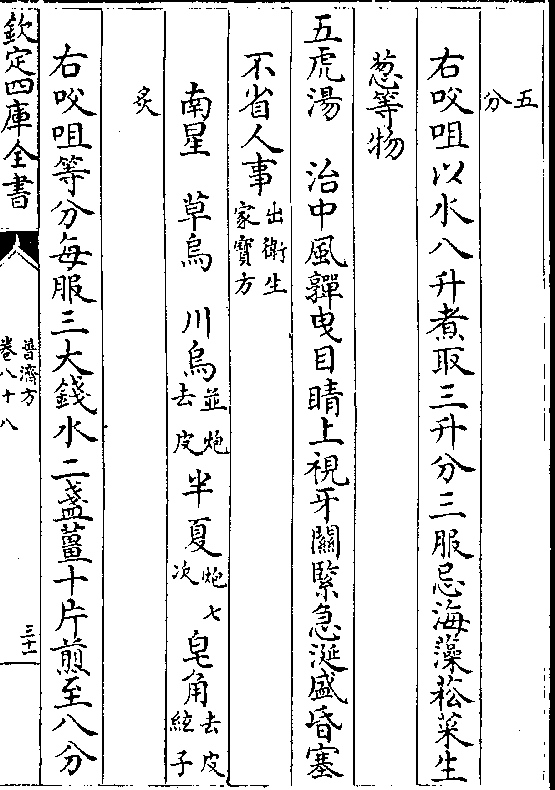 五分
右㕮咀以水八升煮取三升分三服忌海藻菘菜生
葱等物
五虎湯　治中風嚲曳目睛上視牙關緊急涎盛昏塞
不省人事出衛生家寶方
南星　草烏　川烏並炮去皮　半夏炮七次　皂角去皮絃子
炙
右㕮咀等分每服三大錢水二盞薑十片煎至八分
欽定四庫全書
普濟方
卷八十八
三十一